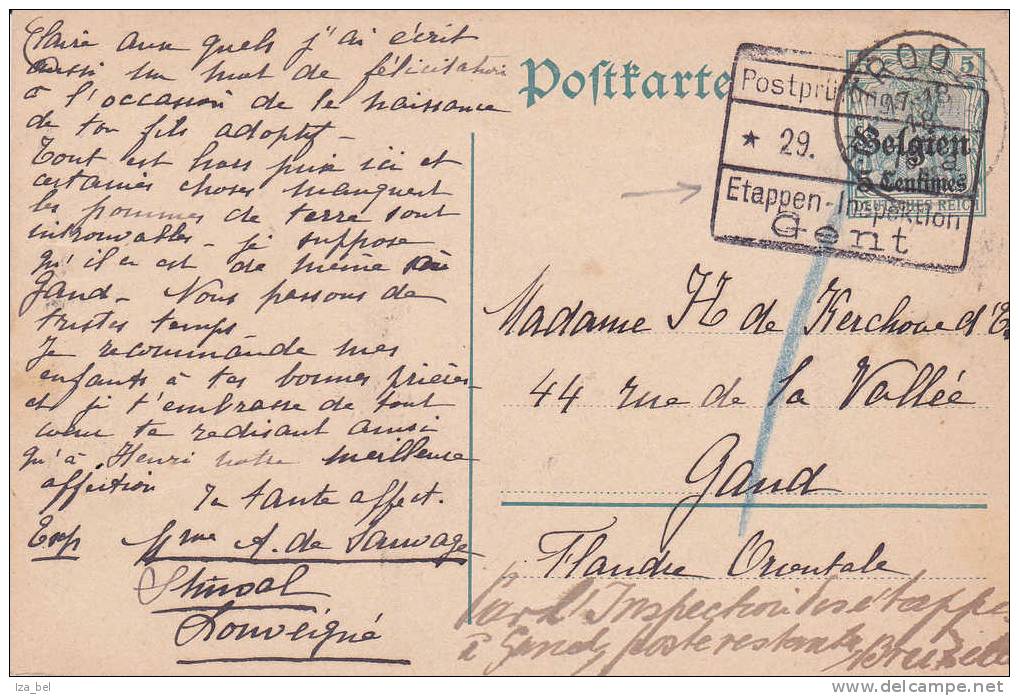 Claire aux quels j'ai écrit
aussi un mot de félicitation
à l'occasion de la naissance
de ton fils adoptif -
Tout est hors prix ici et
certaines choses manquent
les pommes de terre sont
introuvables - je suppose
qu'il en est de même à
Gand - Nous passons de
tristes temps -
Je recommande mes
enfants à tes bonnes prières -
et je t'embrasse de tout
cœur te redisant ainsi
qu'à Henri notre meilleure
affection
Ta tante affect.
Exp Mme A. de Sauvage
Louveigné
Postkarte
Postprü
* 29.
Etappen-Inspektion
Gent
5
Belgien
5 Centimes
DEUTSCHES REICH
Madame H de Kerchove d'E
44 rue de la Vallée
Gand
Flandre Orientale
Par l'Inspection des étappes
à Gand, poste restante
iza_bel
delcampe.net